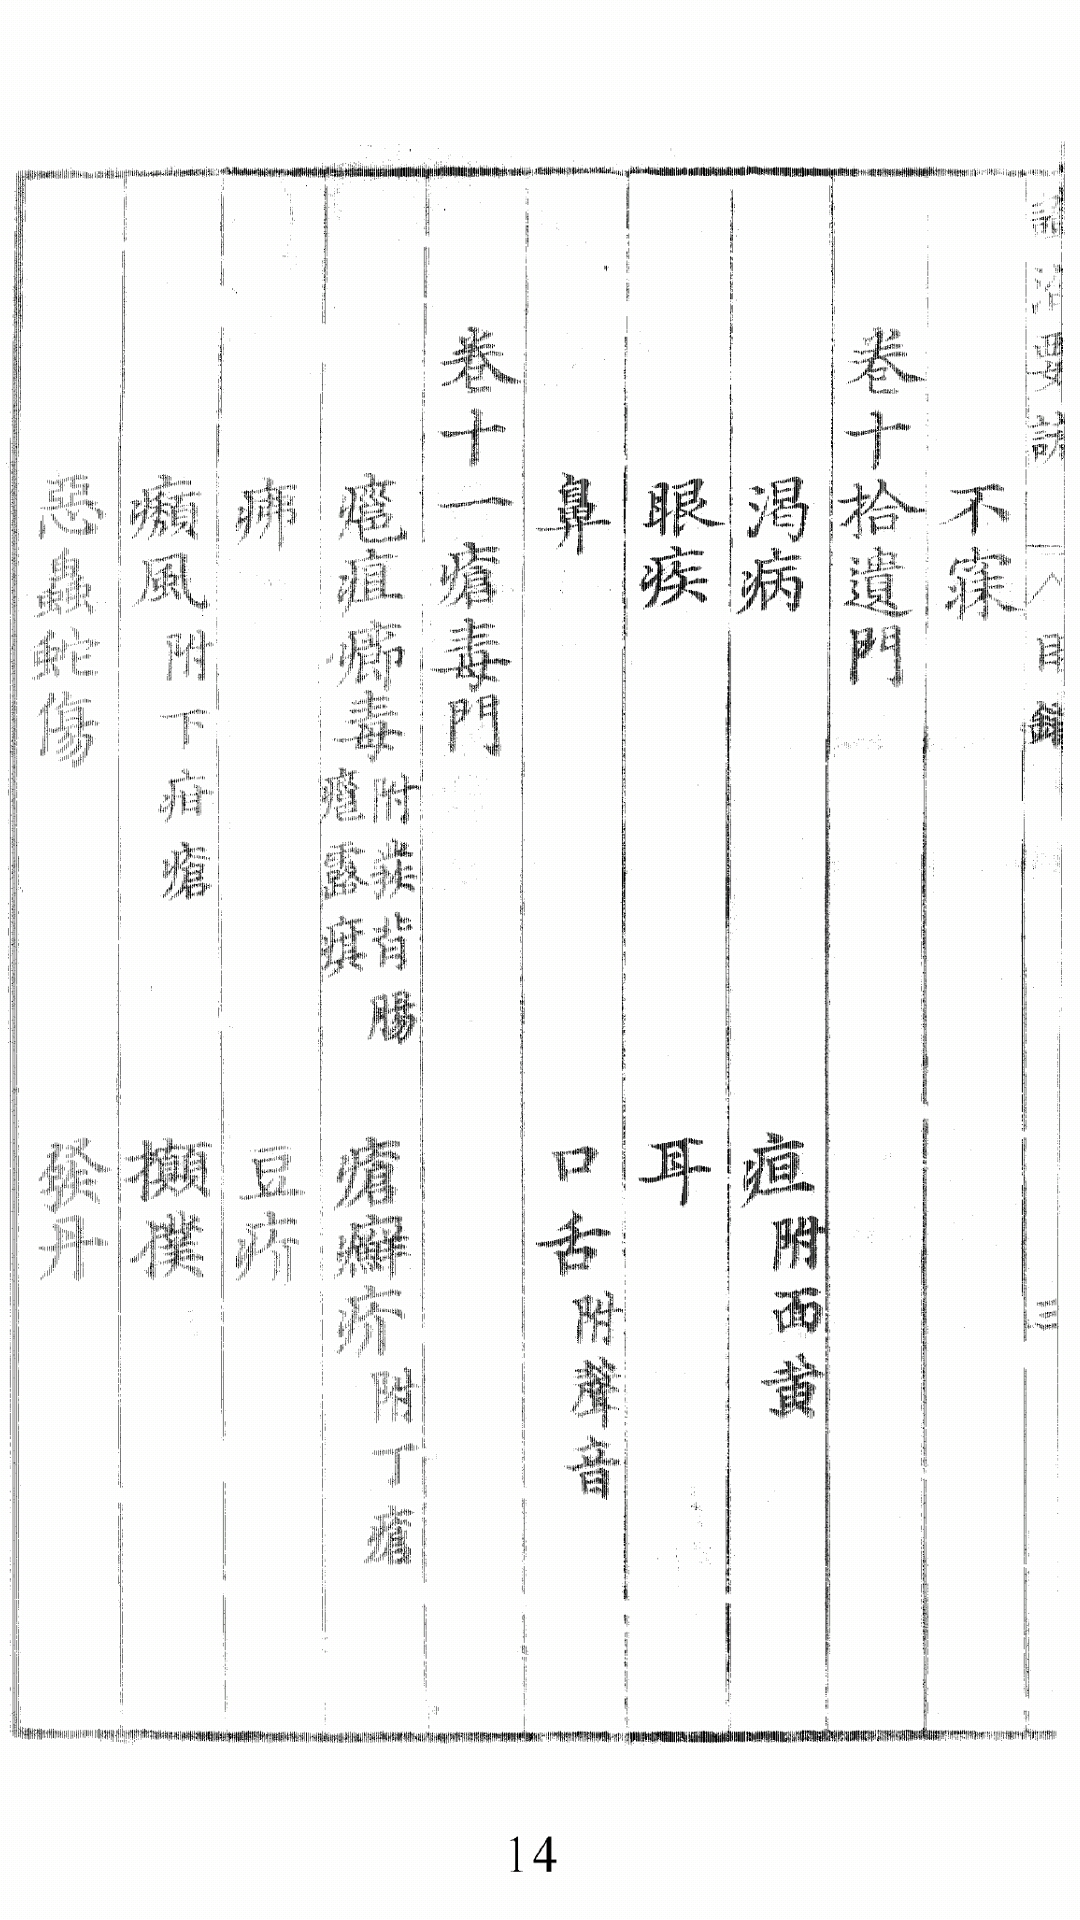 要訣 目錄 三
不寐
卷十拾遺門
渴病 疸附面黃
眼疾 耳
鼻 口舌附聲音
卷十一瘡毒門
癰疽癤毒附發背腸癰 瘡癬疥附丁瘡
疿 豆疥
癩風附下疳瘡 攧撲
惡蟲蛇傷 發丹
14